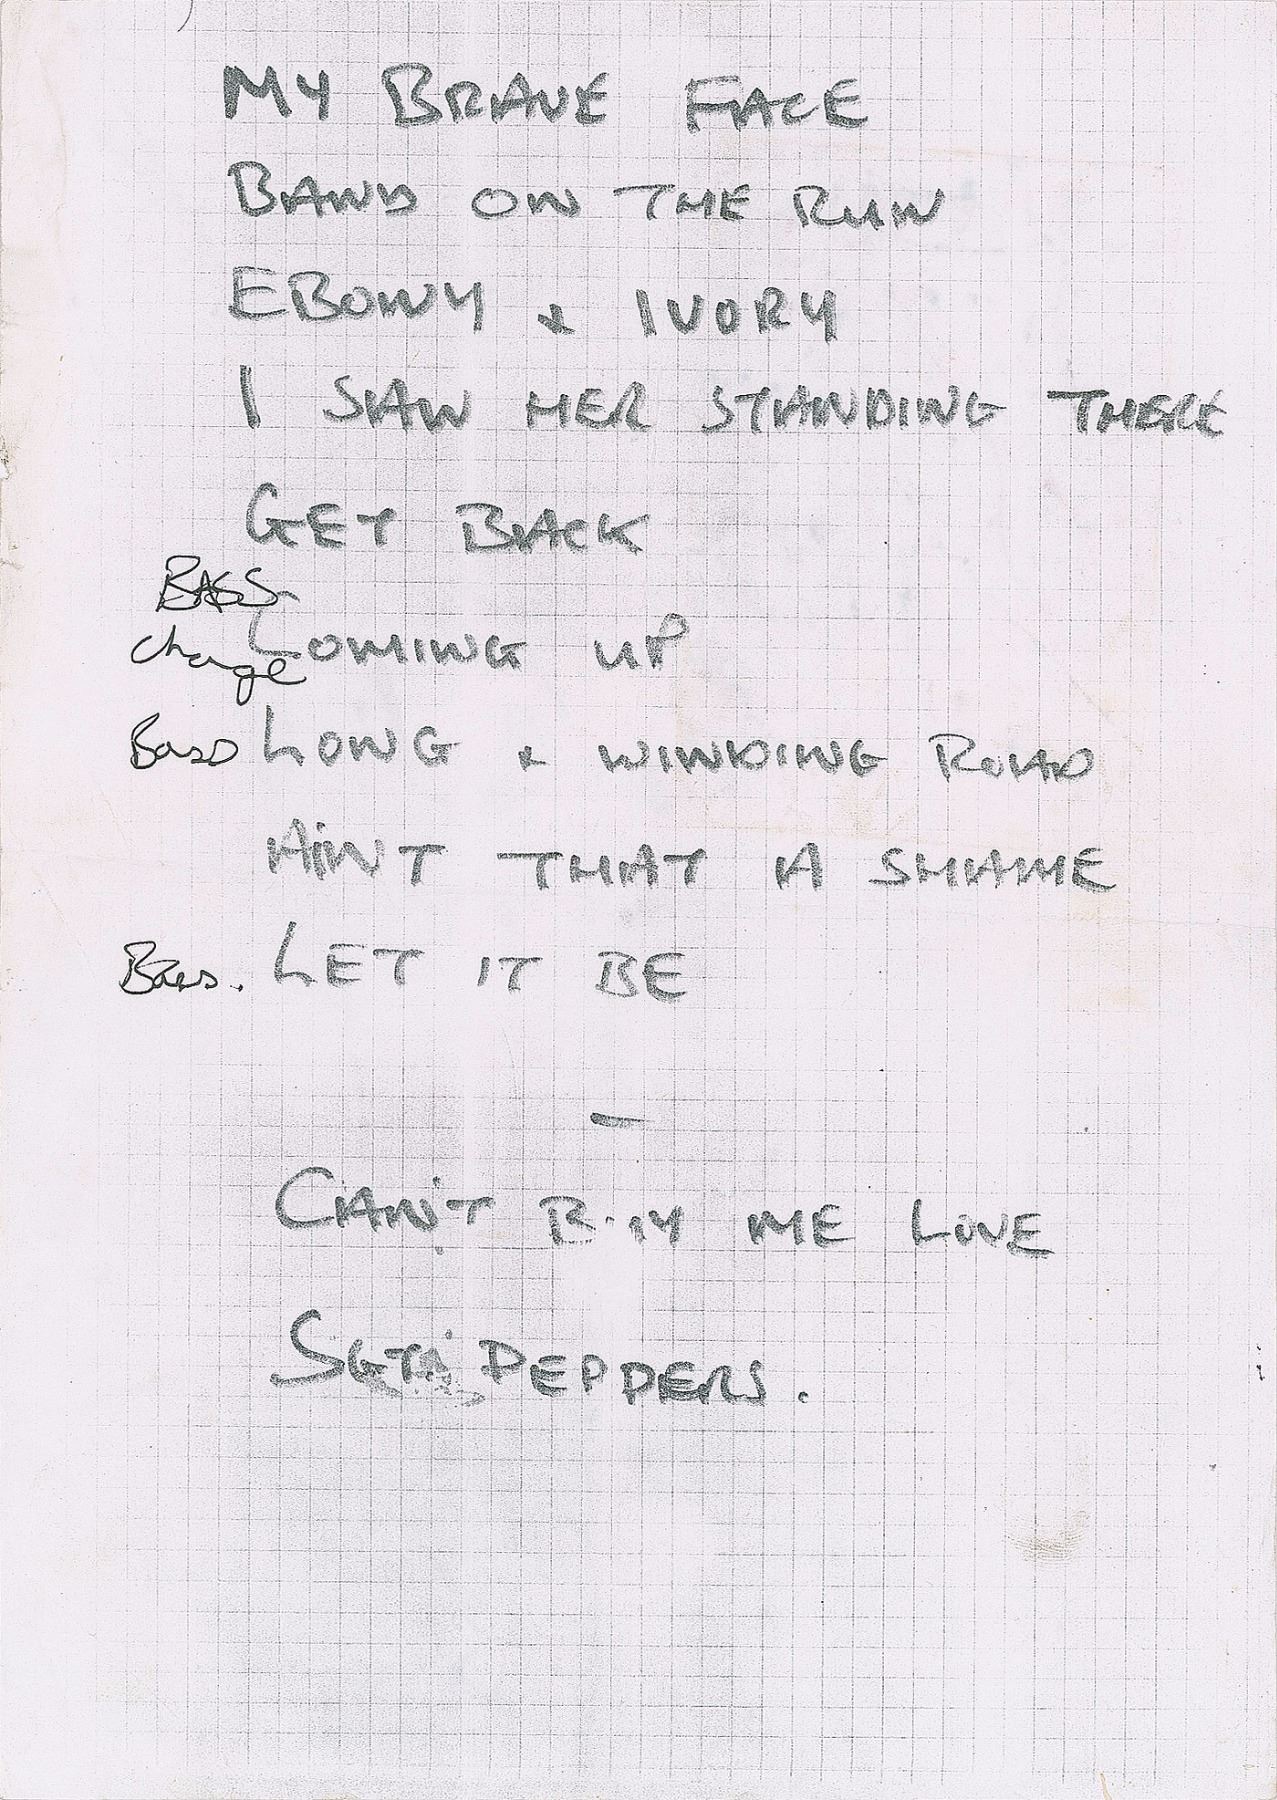 MY BRAVE FACE
BAND ON THE RUN
EBONY & IVORY
I SAW HER STANDING THERE
GET BACK
BASS
change COMING UP
Bass LONG & WINDING ROAD
AiNT THAT A SHAME
Bass. LET IT BE
—
CAN'T BUY ME LOVE
SGT. PEPPERS.